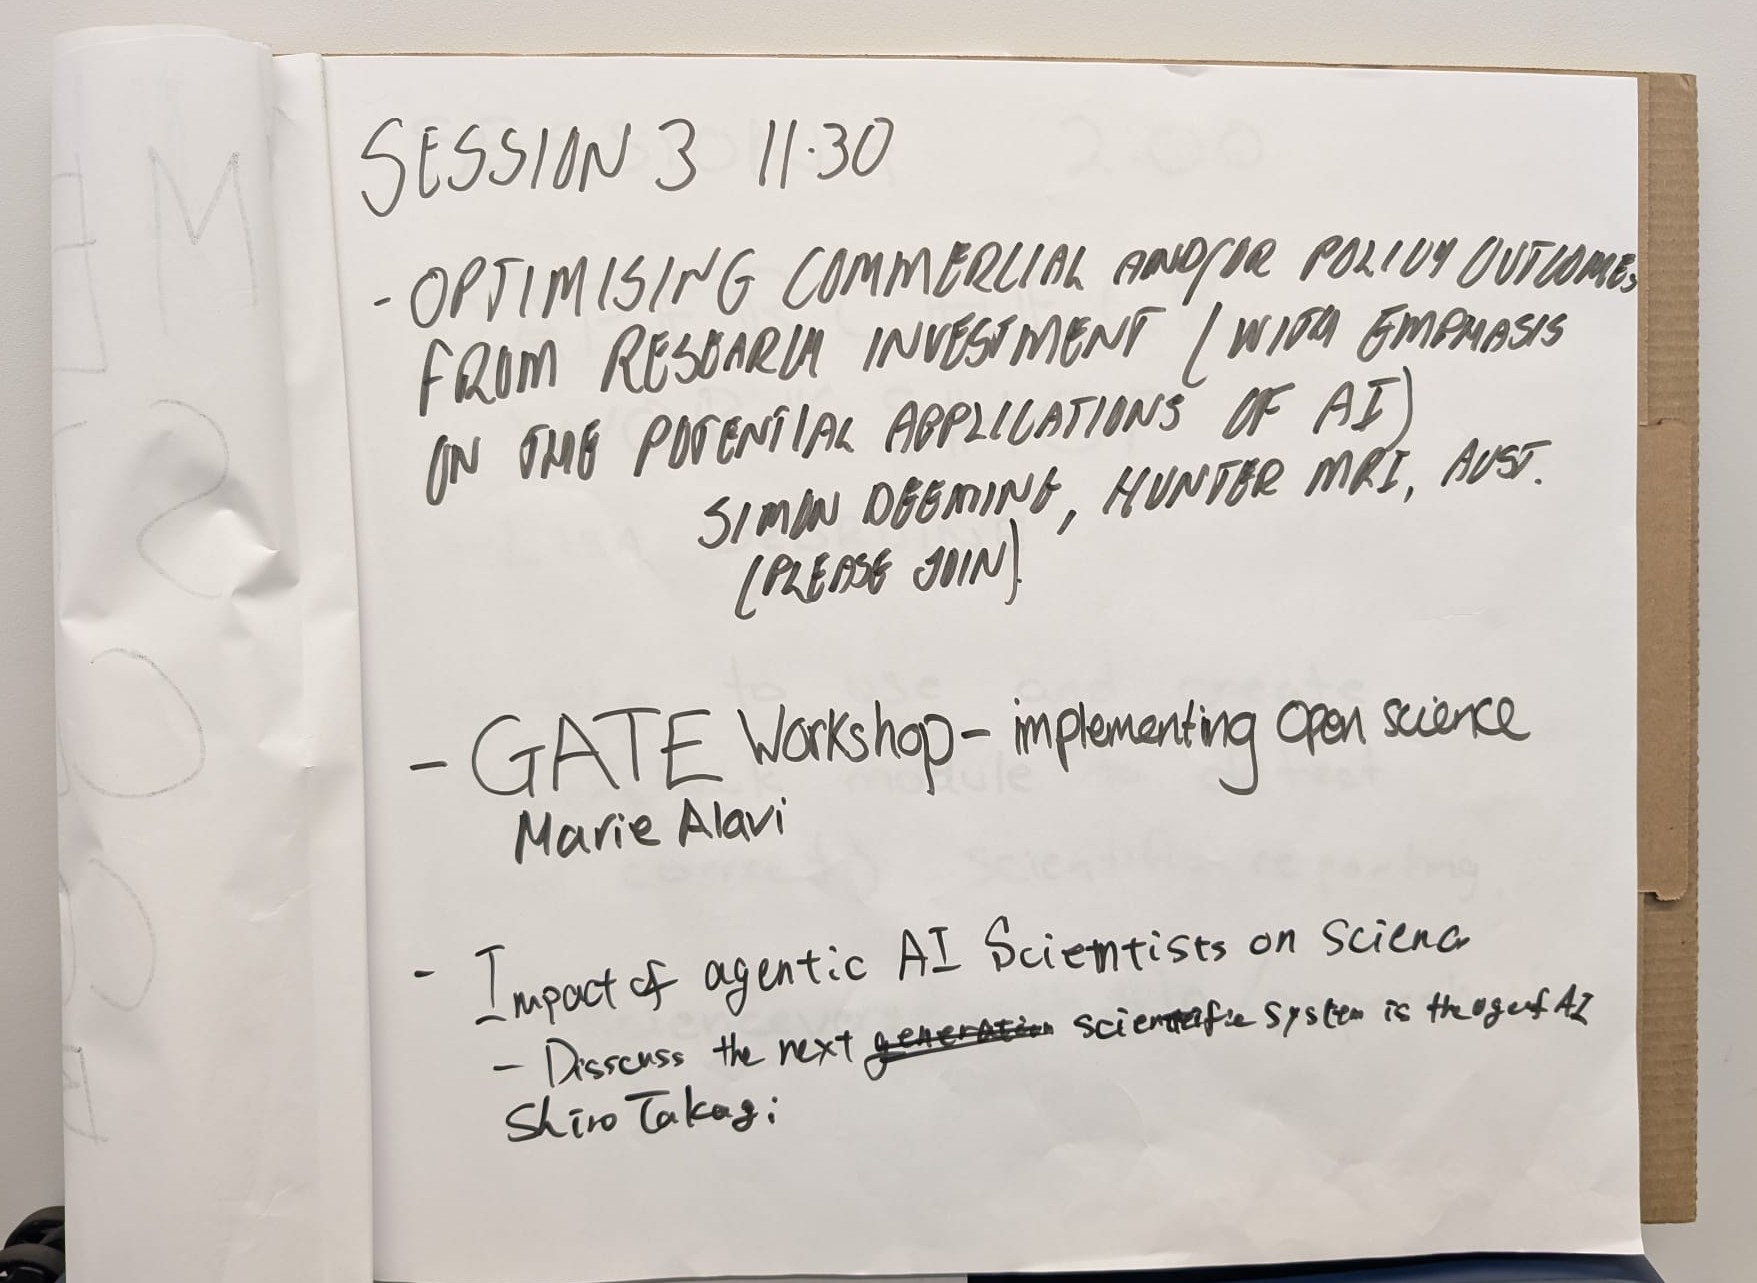 SESSION 3 11.30
- OPTIMISING COMMERCIAL AND/OR POLICY OUTCOMES
FROM RESEARCH INVESTMENT (WITH EMPHASIS
ON THE POTENTIAL APPLICATIONS OF AI)
SIMON DEEMING, HUNTER MRI, AUST.
(PLEASE JOIN)
- GATE Workshop - implementing open science
Marie Alavi
- Impact of agentic AI Scientists on Science
- Disscuss the next generation scientific system is the age of AI
Shiro Takagi